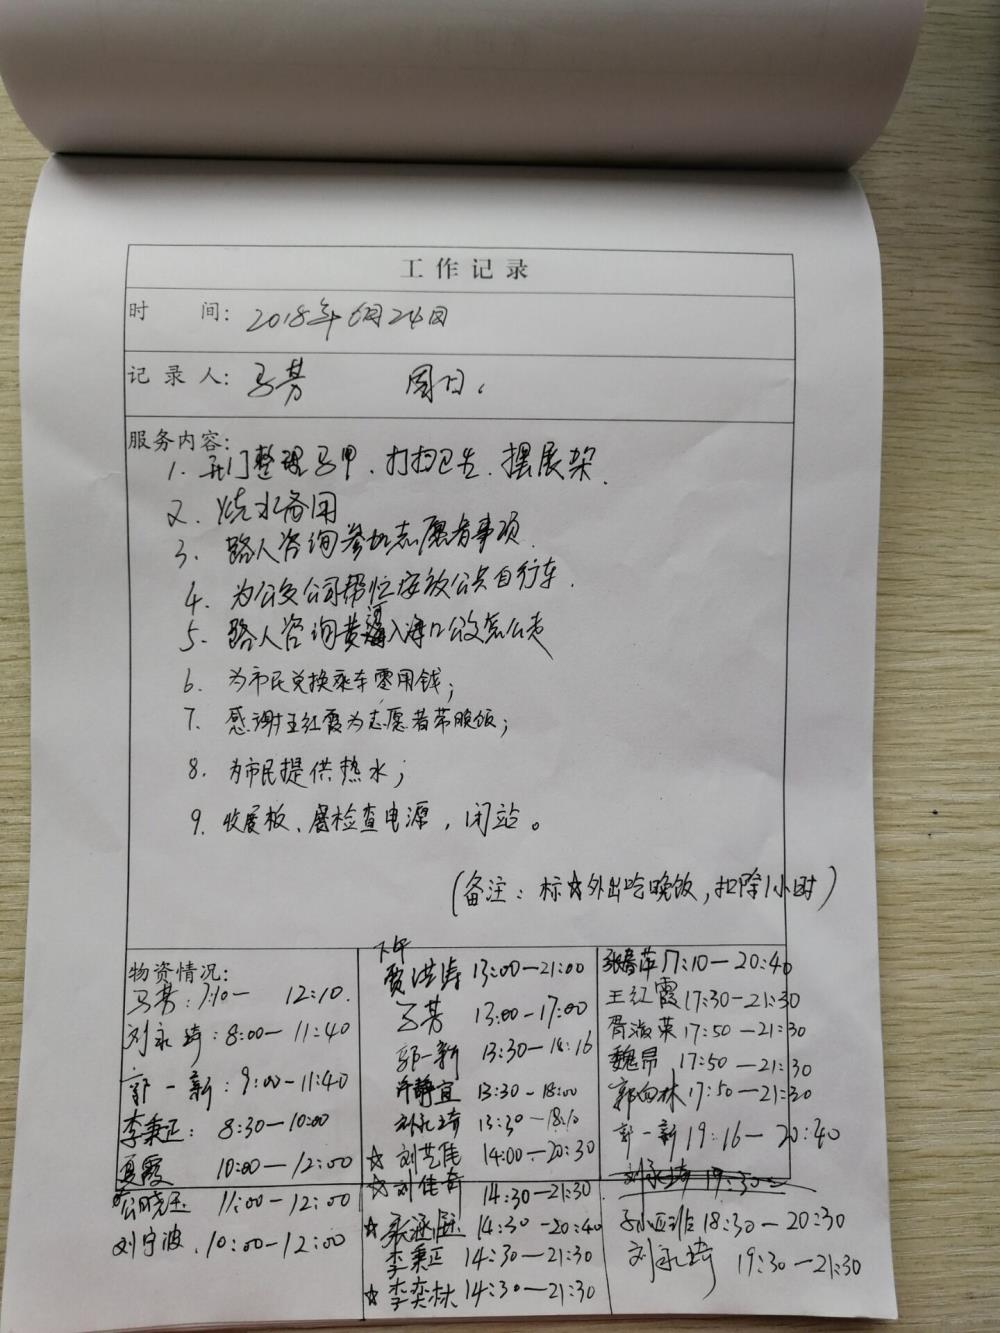 工作记录
时 间: 2018年6月24日
记录人: 马芳 周日.
服务内容:
1. 开门整理马甲、打扫卫生、摆展架.
2. 烧水备用
3. 路人咨询参加志愿者事项.
4. 为公交公司帮忙安放公共自行车.
5. 路人咨询黄河入海口公交怎么走
6. 为市民兑换乘车零用钱;
7. 感谢王红霞为志愿者带晚饭;
8. 为市民提供热水;
9. 收展板、检查电源,闭站。
(备注: 标☆外出吃晚饭,扣除1小时)
物资情况:
马芳: 7:10— 12:10.
刘永琦: 8:00— 11:40
郭一新: 9:00—11:40
李秉正: 8:30—10:00
夏霞 10:00—12:00
公晓玉 11:00—12:00
刘宁波. 10:00—12:00
下午
贾洪涛 13:00—21:00
马芳 13:00—17:00
郭一新 13:30—18:16
许静宜 13:30-18:00
刘永琦 13:30—18:10
☆刘艺伟 14:00—20:30
☆刘佳奇 14:30—21:30
☆ 14:30—20:40
李秉正 14:30—21:30
☆李奕林 14:30—21:30
张春萍 17:10—20:40
王红霞 17:30—21:30
17:50—21:30
魏昂 17:50—21:30
郭向林 17:50—21:30
郭一新 19:16—20:40
刘永琦 19:30—
18:30—20:30
刘永琦 19:30—21:30